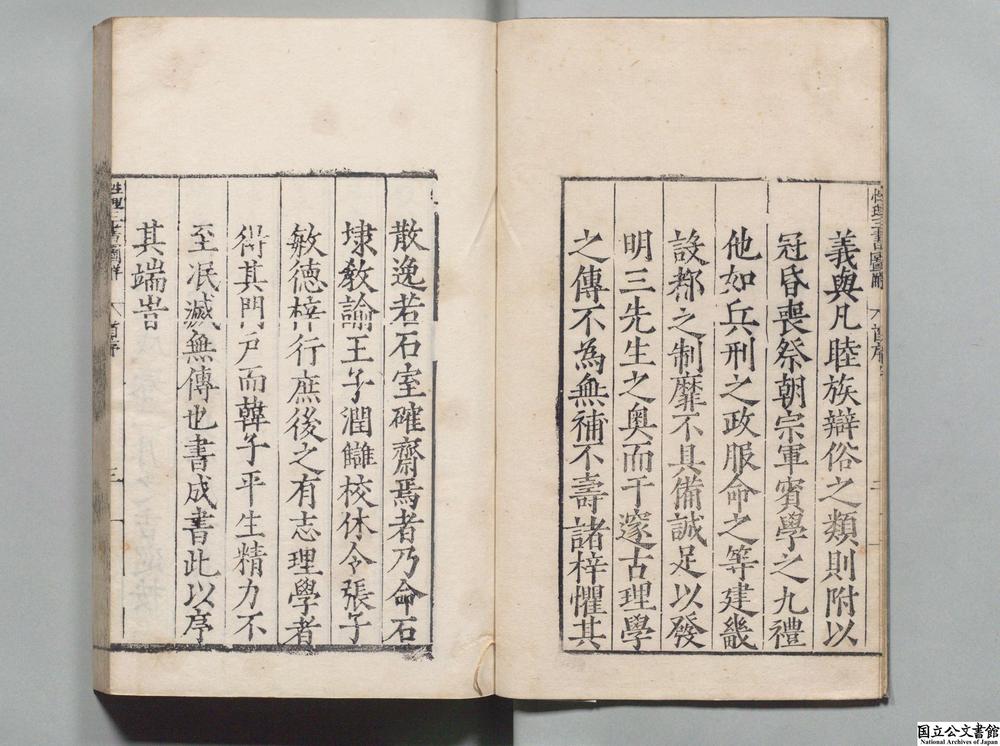 義與凡睦族辯俗之類則附以
冠昏喪祭朝宗軍賓學之九禮
他如兵刑之政服命之等建畿
設都之制靡不具備誠足以發
明三先生之奥而于邃古理學
之傳不為無補不壽諸梓懼其
散逸若石室確齋焉者乃命石
埭敎諭王子潤讎校休令張子
敏德梓行庶後之有志理學者
得其門戸而韓子平生精力不
至冺滅無傳也書成書此以序
其端旹
性理三書圖解
首序
三
国立公文書館
National Archives of Japan